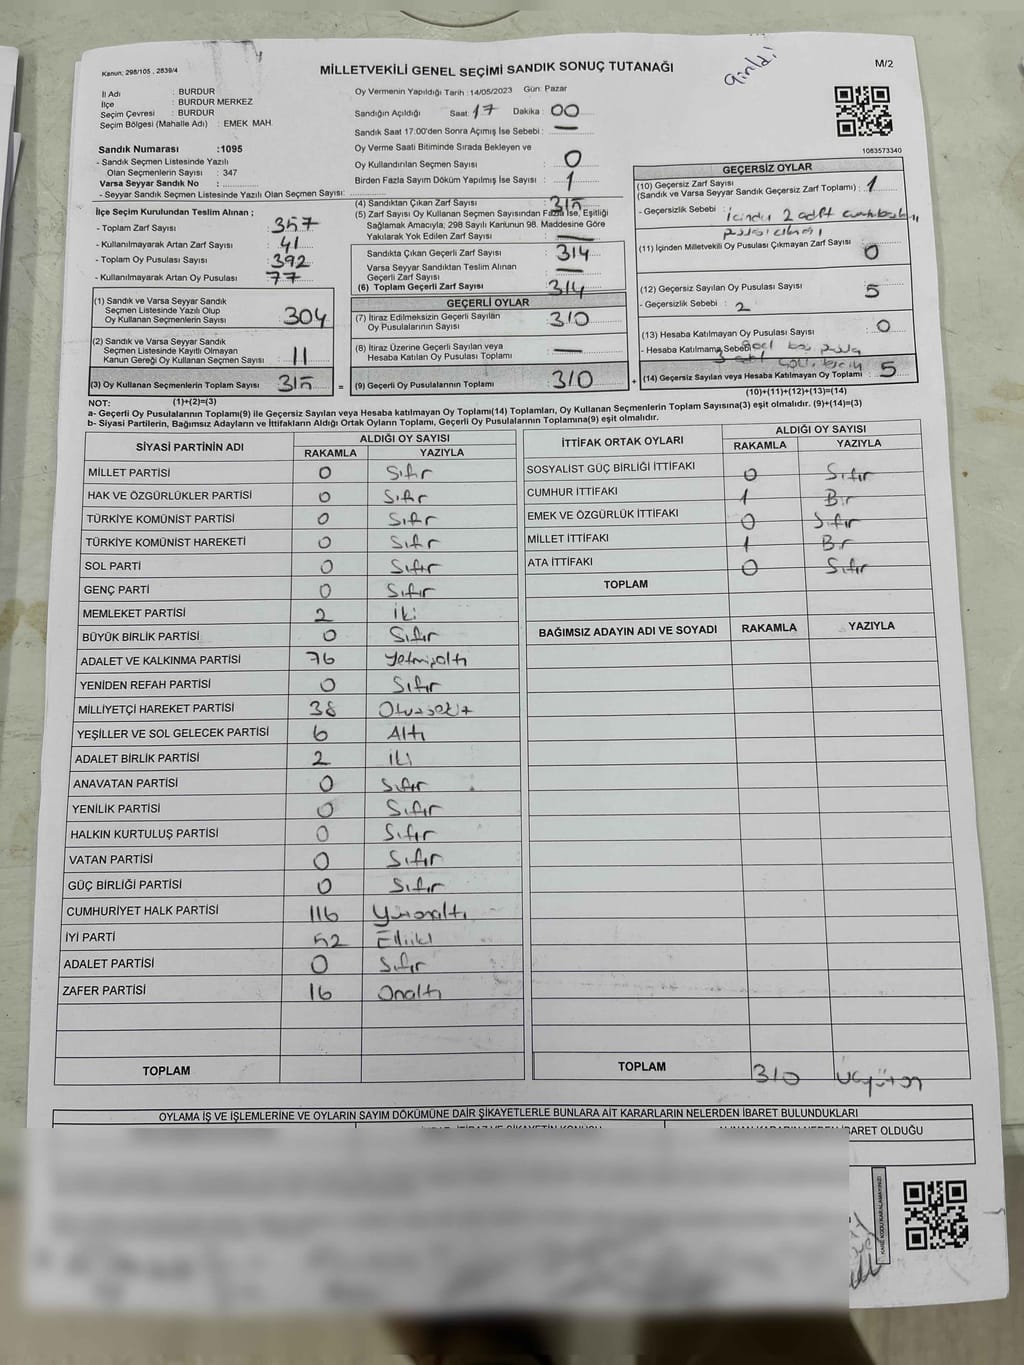 Kanun; 298/105 , 2839/4
MİLLETVEKİLİ GENEL SEÇİMİ SANDIK SONUÇ TUTANAĞI
Girildi
M/2
İl Adı : BURDUR
İlçe : BURDUR MERKEZ
Seçim Çevresi : BURDUR
Seçim Bölgesi (Mahalle Adı) : EMEK MAH.
Oy Vermenin Yapıldığı Tarih : 14/05/2023 Gün: Pazar
Sandığın Açıldığı Saat: 17 Dakika : 00
Sandık Saat 17:00'den Sonra Açımış İse Sebebi : —
Oy Verme Saati Bitiminde Sırada Bekleyen ve
Oy Kullandırılan Seçmen Sayısı : 0
Birden Fazla Sayım Döküm Yapılmış İse Sayısı : 1
1083573340
Sandık Numarası :1095
- Sandık Seçmen Listesinde Yazılı
Olan Seçmenlerin Sayısı : 347
Varsa Seyyar Sandık No :
- Seyyar Sandık Seçmen Listesinde Yazılı Olan Seçmen Sayısı:
İlçe Seçim Kurulundan Teslim Alınan ;
- Toplam Zarf Sayısı : 357
- Kullanılmayarak Artan Zarf Sayısı : 41
- Toplam Oy Pusulası Sayısı : 392
- Kullanılmayarak Artan Oy Pusulası : 77
(1) Sandık ve Varsa Seyyar Sandık
Seçmen Listesinde Yazılı Olup
Oy Kullanan Seçmenlerin Sayısı : 304
(2) Sandık ve Varsa Seyyar Sandık
Seçmen Listesinde Kayıtlı Olmayan
Kanun Gereği Oy Kullanan Seçmen Sayısı : 11
(3) Oy Kullanan Seçmenlerin Toplam Sayısı : 315
(1)+(2)=(3)
(4) Sandıktan Çıkan Zarf Sayısı : 315
(5) Zarf Sayısı Oy Kullanan Seçmen Sayısından Fazla İse, Eşitliği
Sağlamak Amacıyla; 298 Sayılı Kanunun 98. Maddesine Göre
Yakılarak Yok Edilen Zarf Sayısı : —
Sandıkta Çıkan Geçerli Zarf Sayısı : 314
Varsa Seyyar Sandıktan Teslim Alınan
Geçerli Zarf Sayısı : —
(6) Toplam Geçerli Zarf Sayısı : 314
GEÇERLİ OYLAR
(7) İtiraz Edilmeksizin Geçerli Sayılan
Oy Pusulalarının Sayısı : 310
(8) İtiraz Üzerine Geçerli Sayılan veya
Hesaba Katılan Oy Pusulası Toplamı : —
= (9) Geçerli Oy Pusulalarının Toplamı : 310
GEÇERSİZ OYLAR
(10) Geçersiz Zarf Sayısı
(Sandık ve Varsa Seyyar Sandık Geçersiz Zarf Toplamı) : 1
- Geçersizlik Sebebi : içinde 2 adet cumhurbaşkanı
pusulası
(11) İçinden Milletvekili Oy Pusulası Çıkmayan Zarf Sayısı : 0
(12) Geçersiz Sayılan Oy Pusulası Sayısı : 5
- Geçersizlik Sebebi : 2
(13) Hesaba Katılmayan Oy Pusulası Sayısı : 0
- Hesaba Katılmama Sebebi
+ (14) Geçersiz Sayılan veya Hesaba Katılmayan Oy Toplamı : 5
(10)+(11)+(12)+(13)=(14)
NOT:
a- Geçerli Oy Pusulalarının Toplamı(9) ile Geçersiz Sayılan veya Hesaba katılmayan Oy Toplamı(14) Toplamları, Oy Kullanan Seçmenlerin Toplam Sayısına(3) eşit olmalıdır. (9)+(14)=(3)
b- Siyasi Partilerin, Bağımsız Adayların ve İttifakların Aldığı Ortak Oyların Toplamı, Geçerli Oy Pusulalarının Toplamına(9) eşit olmalıdır.
SİYASİ PARTİNİN ADI
ALDIĞI OY SAYISI
RAKAMLA YAZIYLA
MİLLET PARTİSİ 0 Sıfır
HAK VE ÖZGÜRLÜKLER PARTİSİ 0 Sıfır
TÜRKİYE KOMÜNİST PARTİSİ 0 Sıfır
TÜRKİYE KOMÜNİST HAREKETİ 0 Sıfır
SOL PARTİ 0 Sıfır
GENÇ PARTİ 0 Sıfır
MEMLEKET PARTİSİ 2 İki
BÜYÜK BİRLİK PARTİSİ 0 Sıfır
ADALET VE KALKINMA PARTİSİ 76 Yetmişaltı
YENİDEN REFAH PARTİSİ 0 Sıfır
MİLLİYETÇİ HAREKET PARTİSİ 38 Otuzsekiz
YEŞİLLER VE SOL GELECEK PARTİSİ 6 Altı
ADALET BİRLİK PARTİSİ 2 İki
ANAVATAN PARTİSİ 0 Sıfır
YENİLİK PARTİSİ 0 Sıfır
HALKIN KURTULUŞ PARTİSİ 0 Sıfır
VATAN PARTİSİ 0 Sıfır
GÜÇ BİRLİĞİ PARTİSİ 0 Sıfır
CUMHURİYET HALK PARTİSİ 116 Yüzonaltı
İYİ PARTİ 52 Elliiki
ADALET PARTİSİ 0 Sıfır
ZAFER PARTİSİ 16 Onaltı
TOPLAM
İTTİFAK ORTAK OYLARI
ALDIĞI OY SAYISI
RAKAMLA YAZIYLA
SOSYALİST GÜÇ BİRLİĞİ İTTİFAKI 0 Sıfır
CUMHUR İTTİFAKI 1 Bir
EMEK VE ÖZGÜRLÜK İTTİFAKI 0 Sıfır
MİLLET İTTİFAKI 1 Bir
ATA İTTİFAKI 0 Sıfır
TOPLAM
BAĞIMSIZ ADAYIN ADI VE SOYADI RAKAMLA YAZIYLA
TOPLAM 310 Üçyüzon
OYLAMA İŞ VE İŞLEMLERİNE VE OYLARIN SAYIM DÖKÜMÜNE DAİR ŞİKAYETLERLE BUNLARA AİT KARARLARIN NELERDEN İBARET BULUNDUKLARI
İBARET OLDUĞU